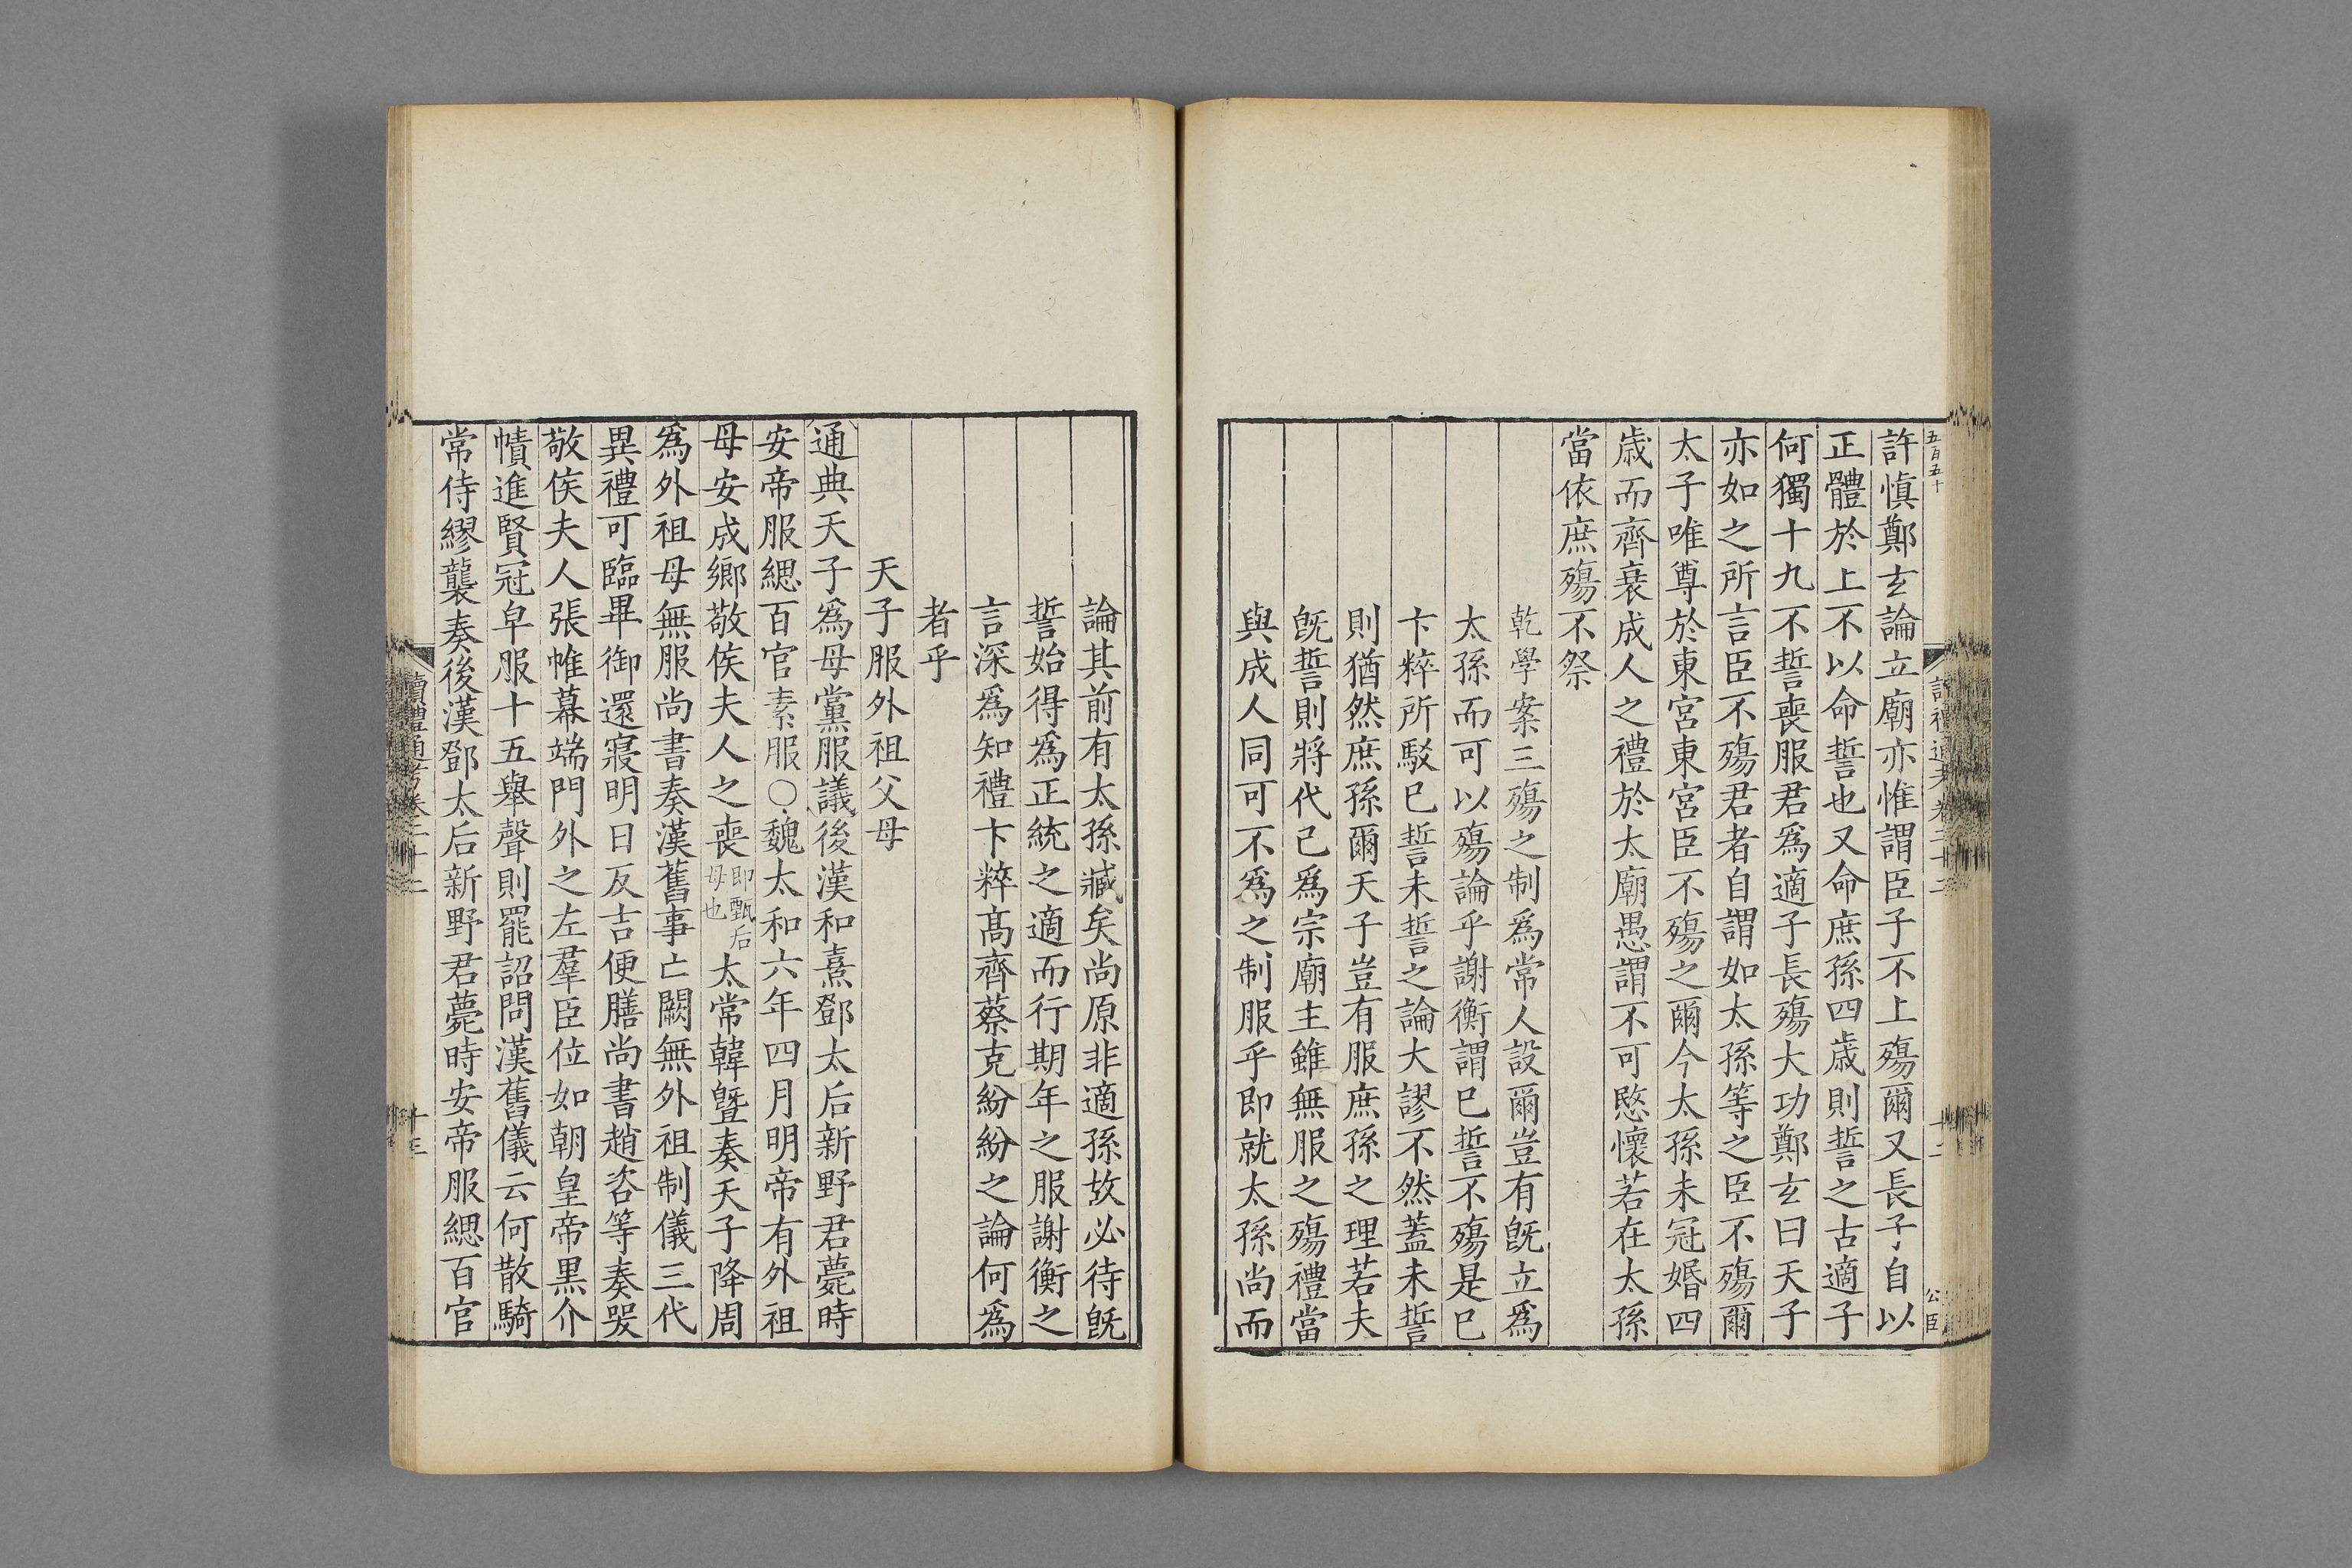 五百五十
許慎鄭玄論立廟亦惟謂臣子不上殤爾又長子自以
正體於上不以命誓也又命庶孫四歲則誓之古適子
何獨十九不誓喪服君爲適子長殤大功鄭玄曰天子
亦如之所言臣不殤君者自謂如太孫等之臣不殤爾
太子唯尊於東宮東宮臣不殤之爾今太孫未冠婚四
歲而齊衰成人之禮於太廟愚謂不可愍懷若在太孫
當依庶殤不祭
乾學案三殤之制爲常人設爾豈有旣立爲
太孫而可以殤論乎謝衡謂已誓不殤是已
卞粹所駁已誓未誓之論大謬不然蓋未誓
則猶然庶孫爾天子豈有服庶孫之理若夫
旣誓則將代己爲宗廟主雖無服之殤禮當
與成人同可不爲之制服乎即就太孫尚而
論其前有太孫臧矣尚原非適孫故必待旣
誓始得爲正統之適而行期年之服謝衡之
言深爲知禮卞粹髙齊蔡克紛紛之論何爲
者乎
天子服外祖父母
通典天子爲母黨服議後漢和熹鄧太后新野君薨時
安帝服緦百官素服○魏太和六年四月明帝有外祖
母安成鄉敬侯夫人之喪即甄后母也太常韓曁奏天子降周
爲外祖母無服尚書奏漢舊事亡闕無外祖制儀三代
異禮可臨畢御還寢明日反吉便膳尚書趙咨等奏哭
敬侯夫人張帷幕端門外之左羣臣位如朝皇帝黑介
幘進賢冠皁服十五舉聲則罷詔問漢舊儀云何散騎
常侍繆襲奏後漢鄧太后新野君薨時安帝服緦百官
讀禮通考卷二十二
十三